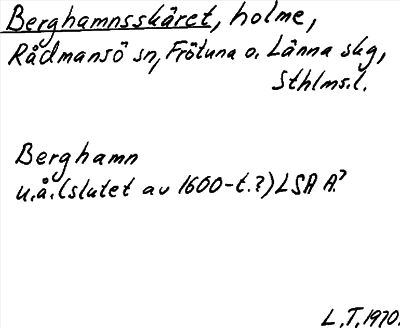 Berghamnsskäret, holme,
Rådmansö sn, Frötuna o. Länna skg,
Sthlms.l.
Berghamn
u.å. (slutet av 1600-t.?) LSA A?
L.T. 1970.